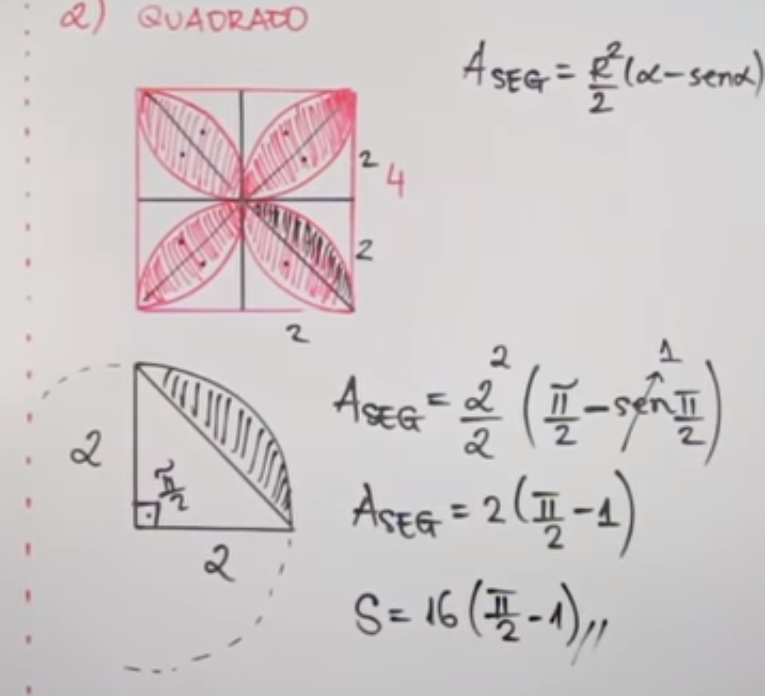 2) QUADRADO
A SEG = R²/2 (α - senα)
2
4
2
2
2
π/2
2
A SEG = 2²/2 (π/2 - sen π/2) 1
A SEG = 2 (π/2 - 1)
S = 16 (π/2 - 1)//